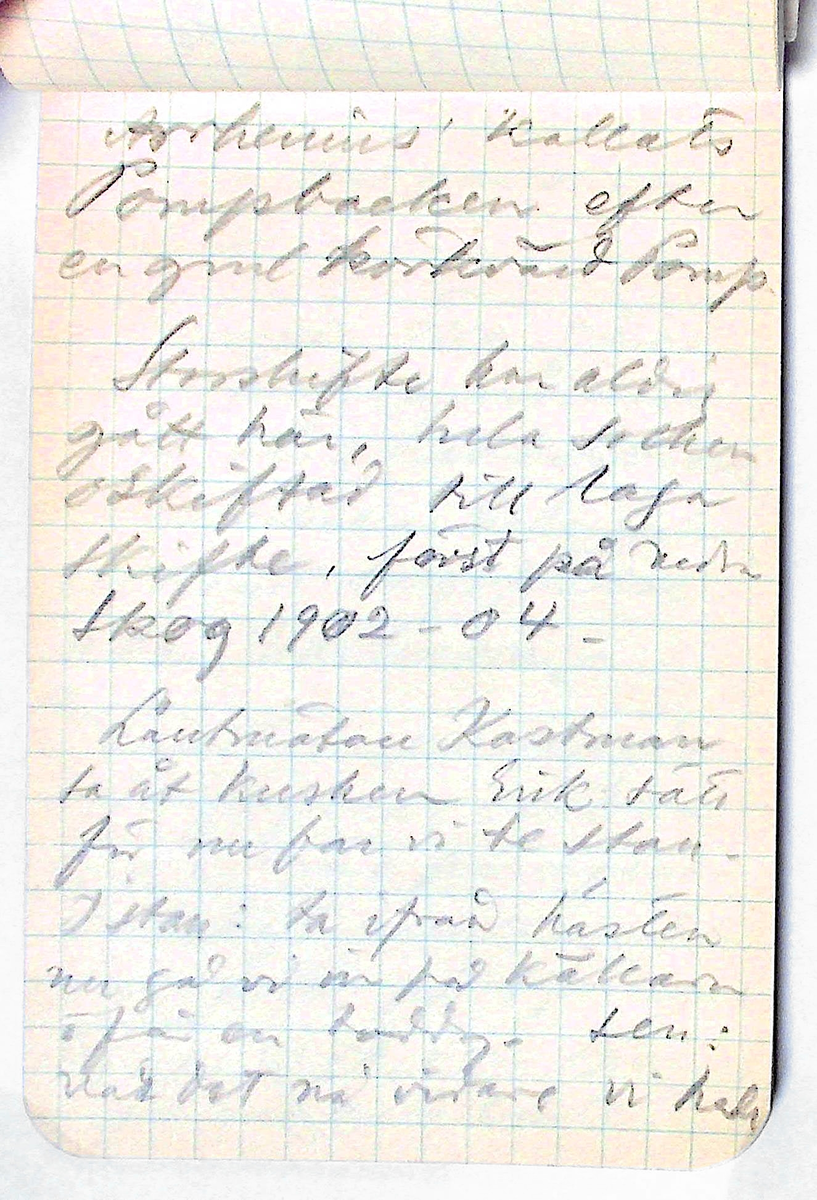 Arrhenius' kallats
Pompbacken efter
en gml korkvärd Pomp.
Storskifte har aldrig
gått här, hela socken
oskiftad till laga
skifte, först på
skog 1902-04-
Lantmätare Kastman
sa åt kusken Erik
för nu far vi te stan.
I stan: ta ifrån hästen
nu gå vi in på källarn
o får en toddy. Sen:
det nå vidare vi